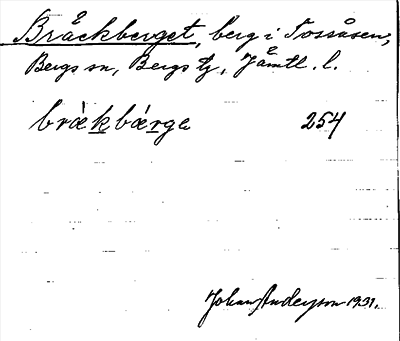 Bråckberget, berg i Tossåsen,
Bergs sn, Bergs tg, Jämtl. l.
bràkbá̱rge 254
Johan Anderson 1931.